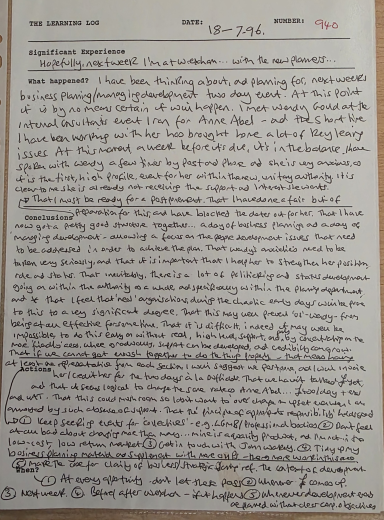 THE LEARNING LOG DATE: 18-7-96. NUMBER: 940
Significant Experience
Hopefully, next week I'm at Wrexham... with the new planners...
What happened? I have been thinking about, and planning for, next week's
business planning/managing development two day event. At this point
it is by no means certain it will happen. I met Wendy Gould at the
Internal Consultants event I ran for Anne Abel - and the short time
I have been working with her has brought home a lot of key
issues. At this moment a week before its due, it's in the balance, I have
spoken with Wendy a few times by past and phone and she is very anxious, as
it is the first, high profile, event for her within the new, unitary authority. it is
clear to me she is already not receiving the support and interest she wants.
That I must be ready for a postponement. That I have done a fair bit of
Conclusions preparation for this, and have blocked the dates out for her. That I have
now got a pretty good structure together... a day of business planning and a day of
managing development - allowing a focus on the people development issues that need
to be addressed in order to achieve the plan. That Wendy's anxieties need to be
taken very seriously, and that it is important that I help her to strengthen her position,
role and status. That inevitably, there is a lot of politicking and status development
going on within the authority as a whole and specifically within the planning department
and that I feel that 'new' organisations, during the chaotic early days would be prone
to this to a very significant degree. That this may well prevent
being at all effective for some time. That it is difficult, indeed it may well be
impossible to do this easily or without real, high level, support and, by
where endeavours, support can be developed and
That if we cannot get enough together to do the thing properly - that means having
at least one representative from each section I would suggest we postpone, and I would invoice
Actions
for the two days in a
and that it seems logical to charge the same rate as Anne Abel
and VAT. That this could mushroom so I don't want to over charge or upset Wendy. I am
annoyed by such absence of support. That the principle of appropriate responsibility
① Keep seeking events for collectives - e.g. LGMB/Professional bodies ② Don't feel
at all bad about charging more than many... mine is a quality product, and I'm not in the
low-cost, low return market ③ Get in touch with ④ Tidy up my
business planning material and supplement with more OHP's - there is more work in this area
⑤ Make the case for clarity of business/strategic first ref. the content of development
When?
① At every opportunity - don't let them pass ② Whenever it comes up.
③ Next week. ④ Before after Wrexham - if it happens ⑤ whenever development events
are planned without clear corporate objectives